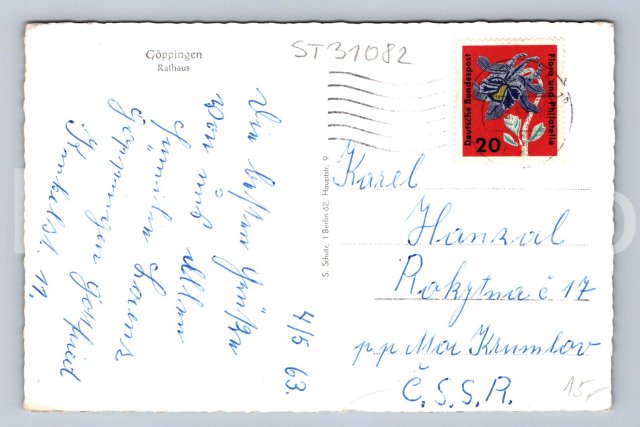 Göppingen
Rathaus
ST31082
Deutsche Bundespost
Flora und Philatelie
20
S. Schatz, 1 Berlin 62, Hauptstr. 9
4/5 63.
Die besten Grüße
von uns allen
Familie Lorenz
Göppingen Gottfried
Kinkelst. 19.
Karel
Hanzal
Rokytna č 17
pp Mor Krumlov
Č.S.S.R.
15,-